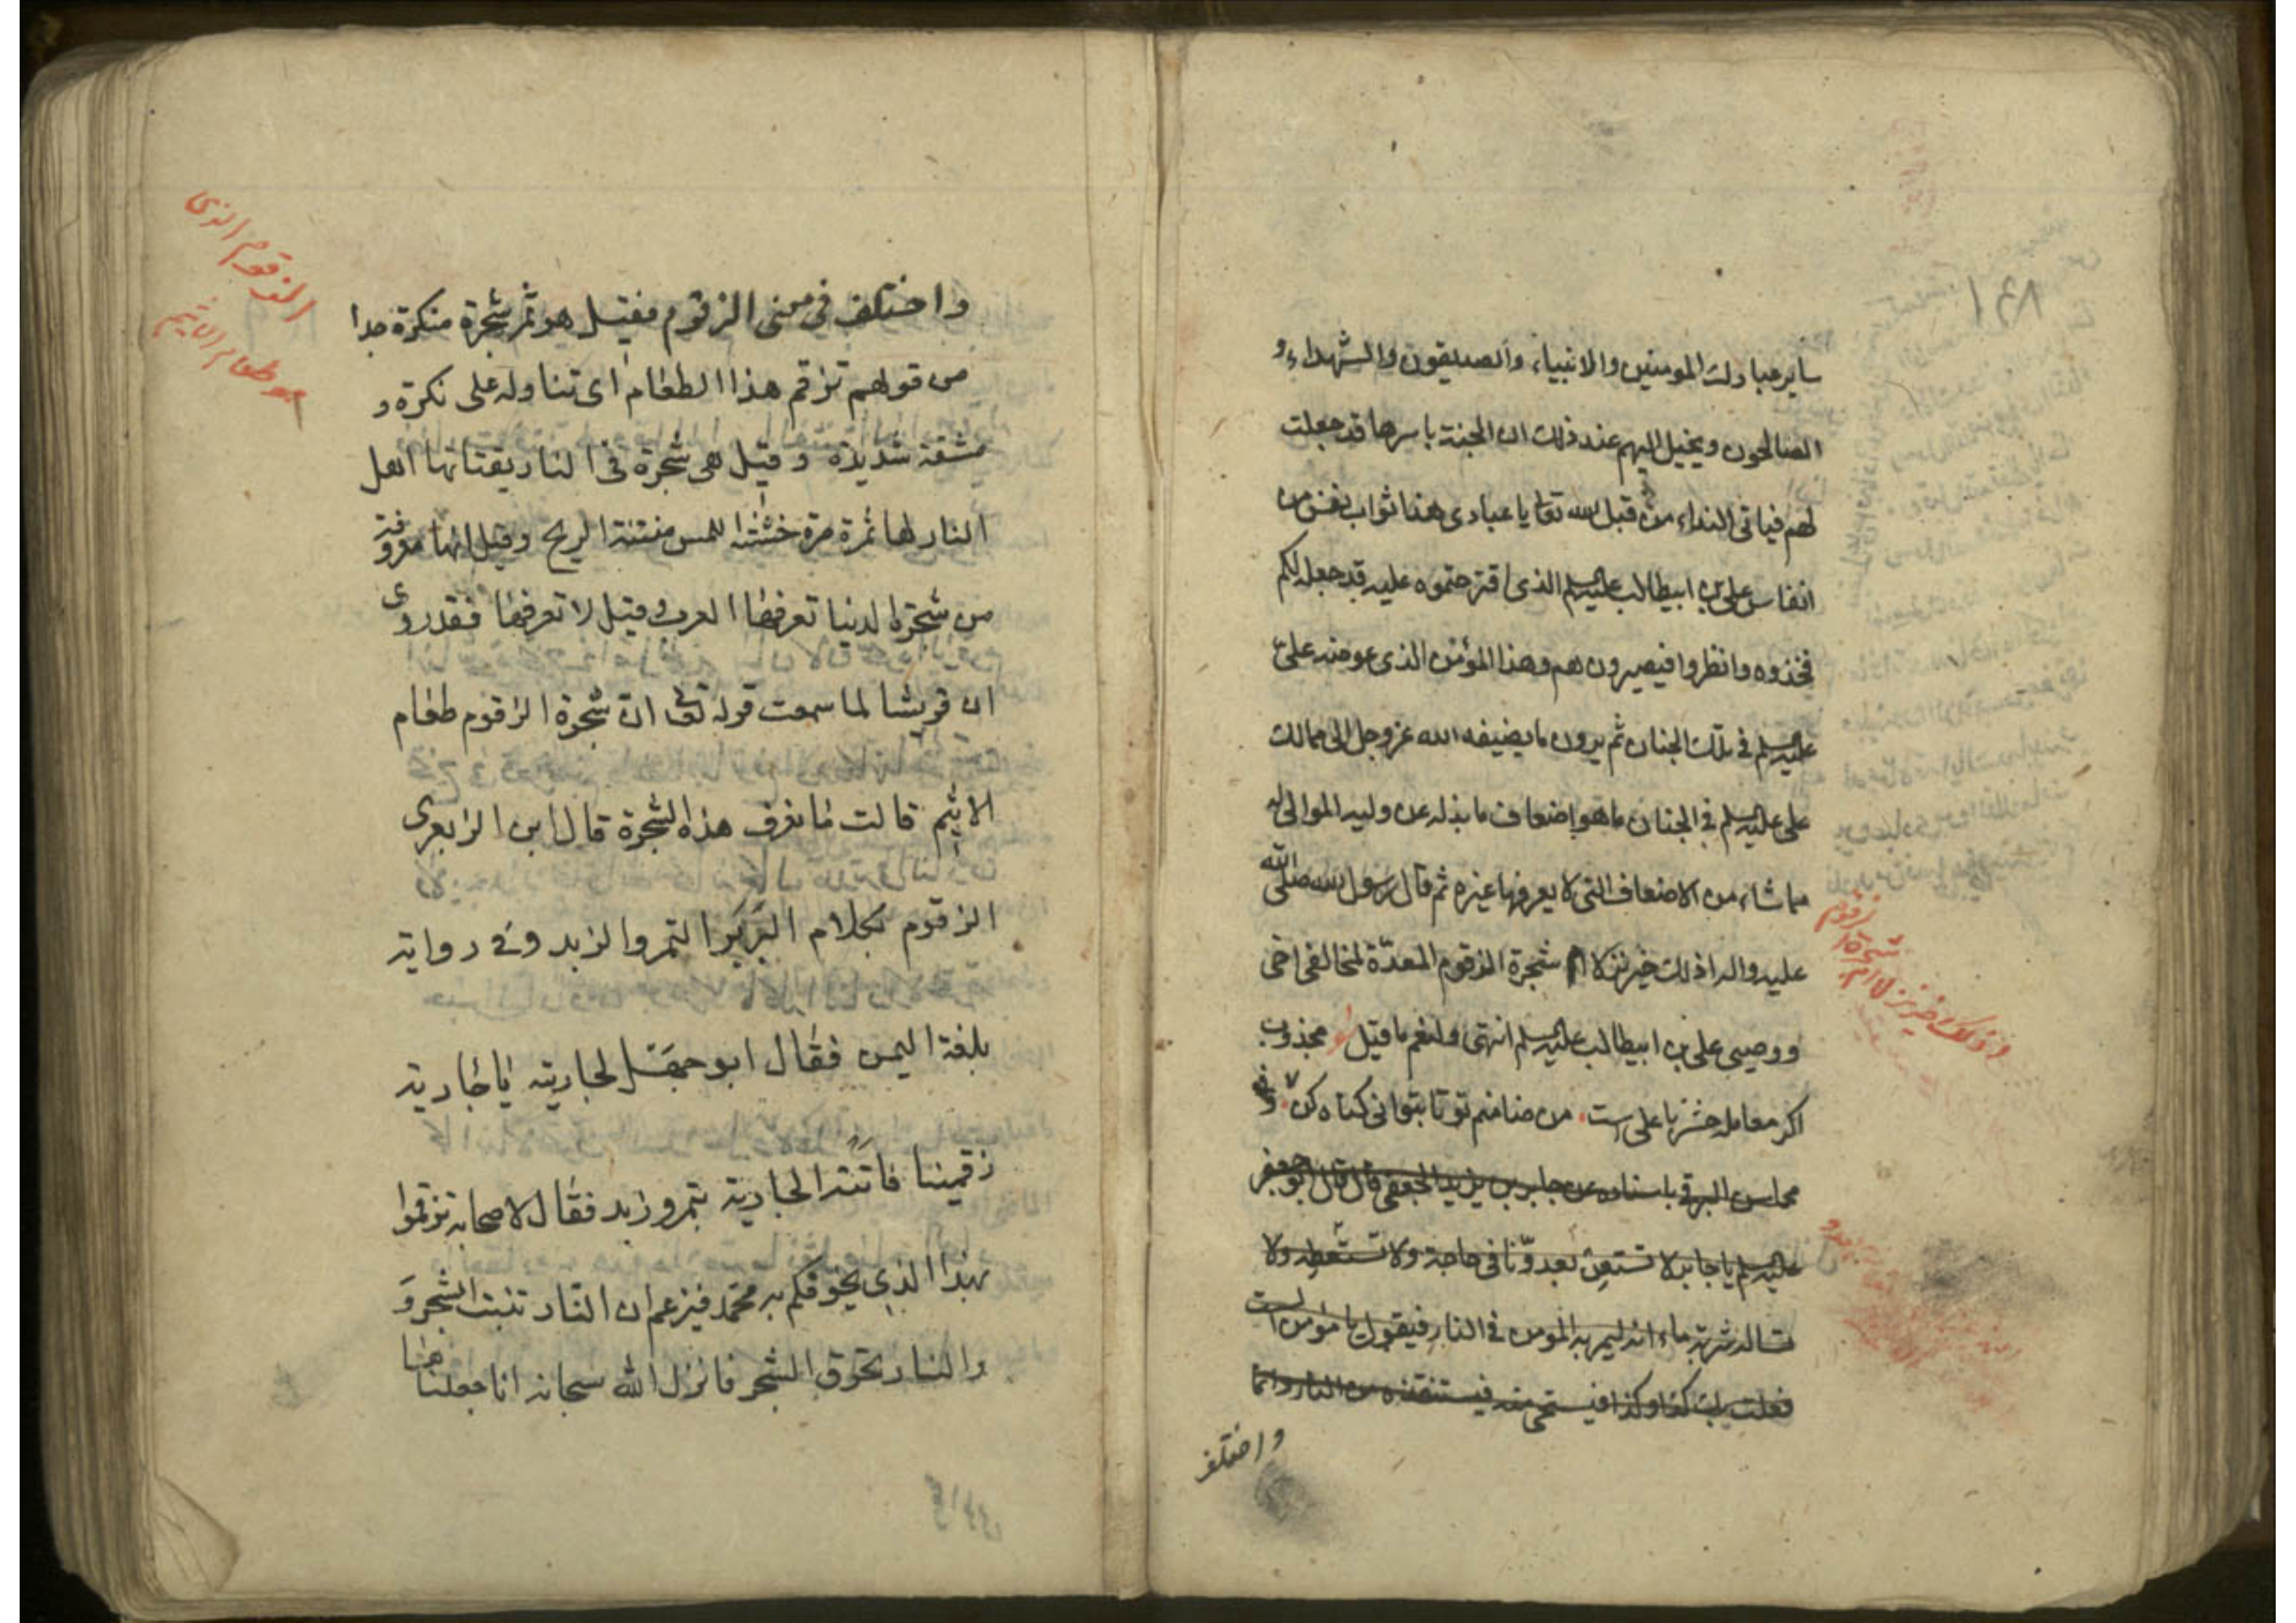 ١٩٨
ساير عبادك المومنين والانبياء والصديقون والشهداء و
الصالحون ويخيل اليهم عند ذلك ان الجنة باسرها قد جعلت
لهم فياتي النداء من قبل الله تعا يا عبادي هذا ثواب نفس من
انفاس علي بن ابيطالب عليه السلم الذي اقترحتموه عليه قد جعله لكم
فخذوه وانظروا فيصيرون هم وهذا المؤمن الذي عوضه علي
عليه السلم في تلك الجنان ثم يرون ما يضيفه الله عز وجل الى ممالك
علي عليه السلم في الجنان ما هو اضعاف ما بذله عن وليه الموالي له
مما شاء من الاضعاف التي لا يعرفها غيره ثم قال رسول الله صلى الله
عليه واله اذلك خير نزلا ام شجرة الزقوم المعدّة لمخالفي اخي
ووصيي علي بن ابيطالب عليه السلم انتهى ولنعم ما قيل مجذوب
اكر معامله حشر با علي است من ضامنم تو تا بتواني كناه كن وفي
محاسن البرقي باسناده عن جابر بن يزيد الجعفي قال قال ابو جعفر
عليه السلم يا جابر لا تستعن بعدوّنا في حاجة ولا تستعطه ولا
تساله شربة ماء انه ليمر به المومن في النار فيقول يا مؤمن الست
فعلت بك كذا وكذا فيستحي منه فيستنقذه من النار وانما
واختلف
زقوم
شجرة
اذلك خير نزلا ام
واختلف في معنى الزقوم فقيل هو ثمر شجرة منكرة جدا
من قولهم تزقم هذا الطعام اى تناوله على نكرة و
مشقة شديدة وقيل هي شجرة في النار يقتاتها اهل
النار لها ثمرة مرة خشنة اللمس منتنة الريح وقيل انها معروفة
من شجرة الدنيا تعرفها العرب وقيل لا تعرفها فقد روى
ان قريشا لما سمعت قوله تعا انّ شجرة الزقوم طعام
الاثيم قالت ما نعرف هذه الشجرة قال ابن الزبعرى
الزقوم بكلام البَرْبَر التمر والزبد وفي رواية
بلغة اليمن فقال ابو جهل لجاريته يا جارية
زقمينا فاتته الجارية بتمر وزبد فقال لاصحابه تزقموا
بهذا الذي يخوفكم به محمّد فيزعم ان النّار تنبت الشجر وَ
والنار تحرق الشجر فانزل الله سبحانه انا جعلناها
الزقوم الذى
هو طعام الاثيم